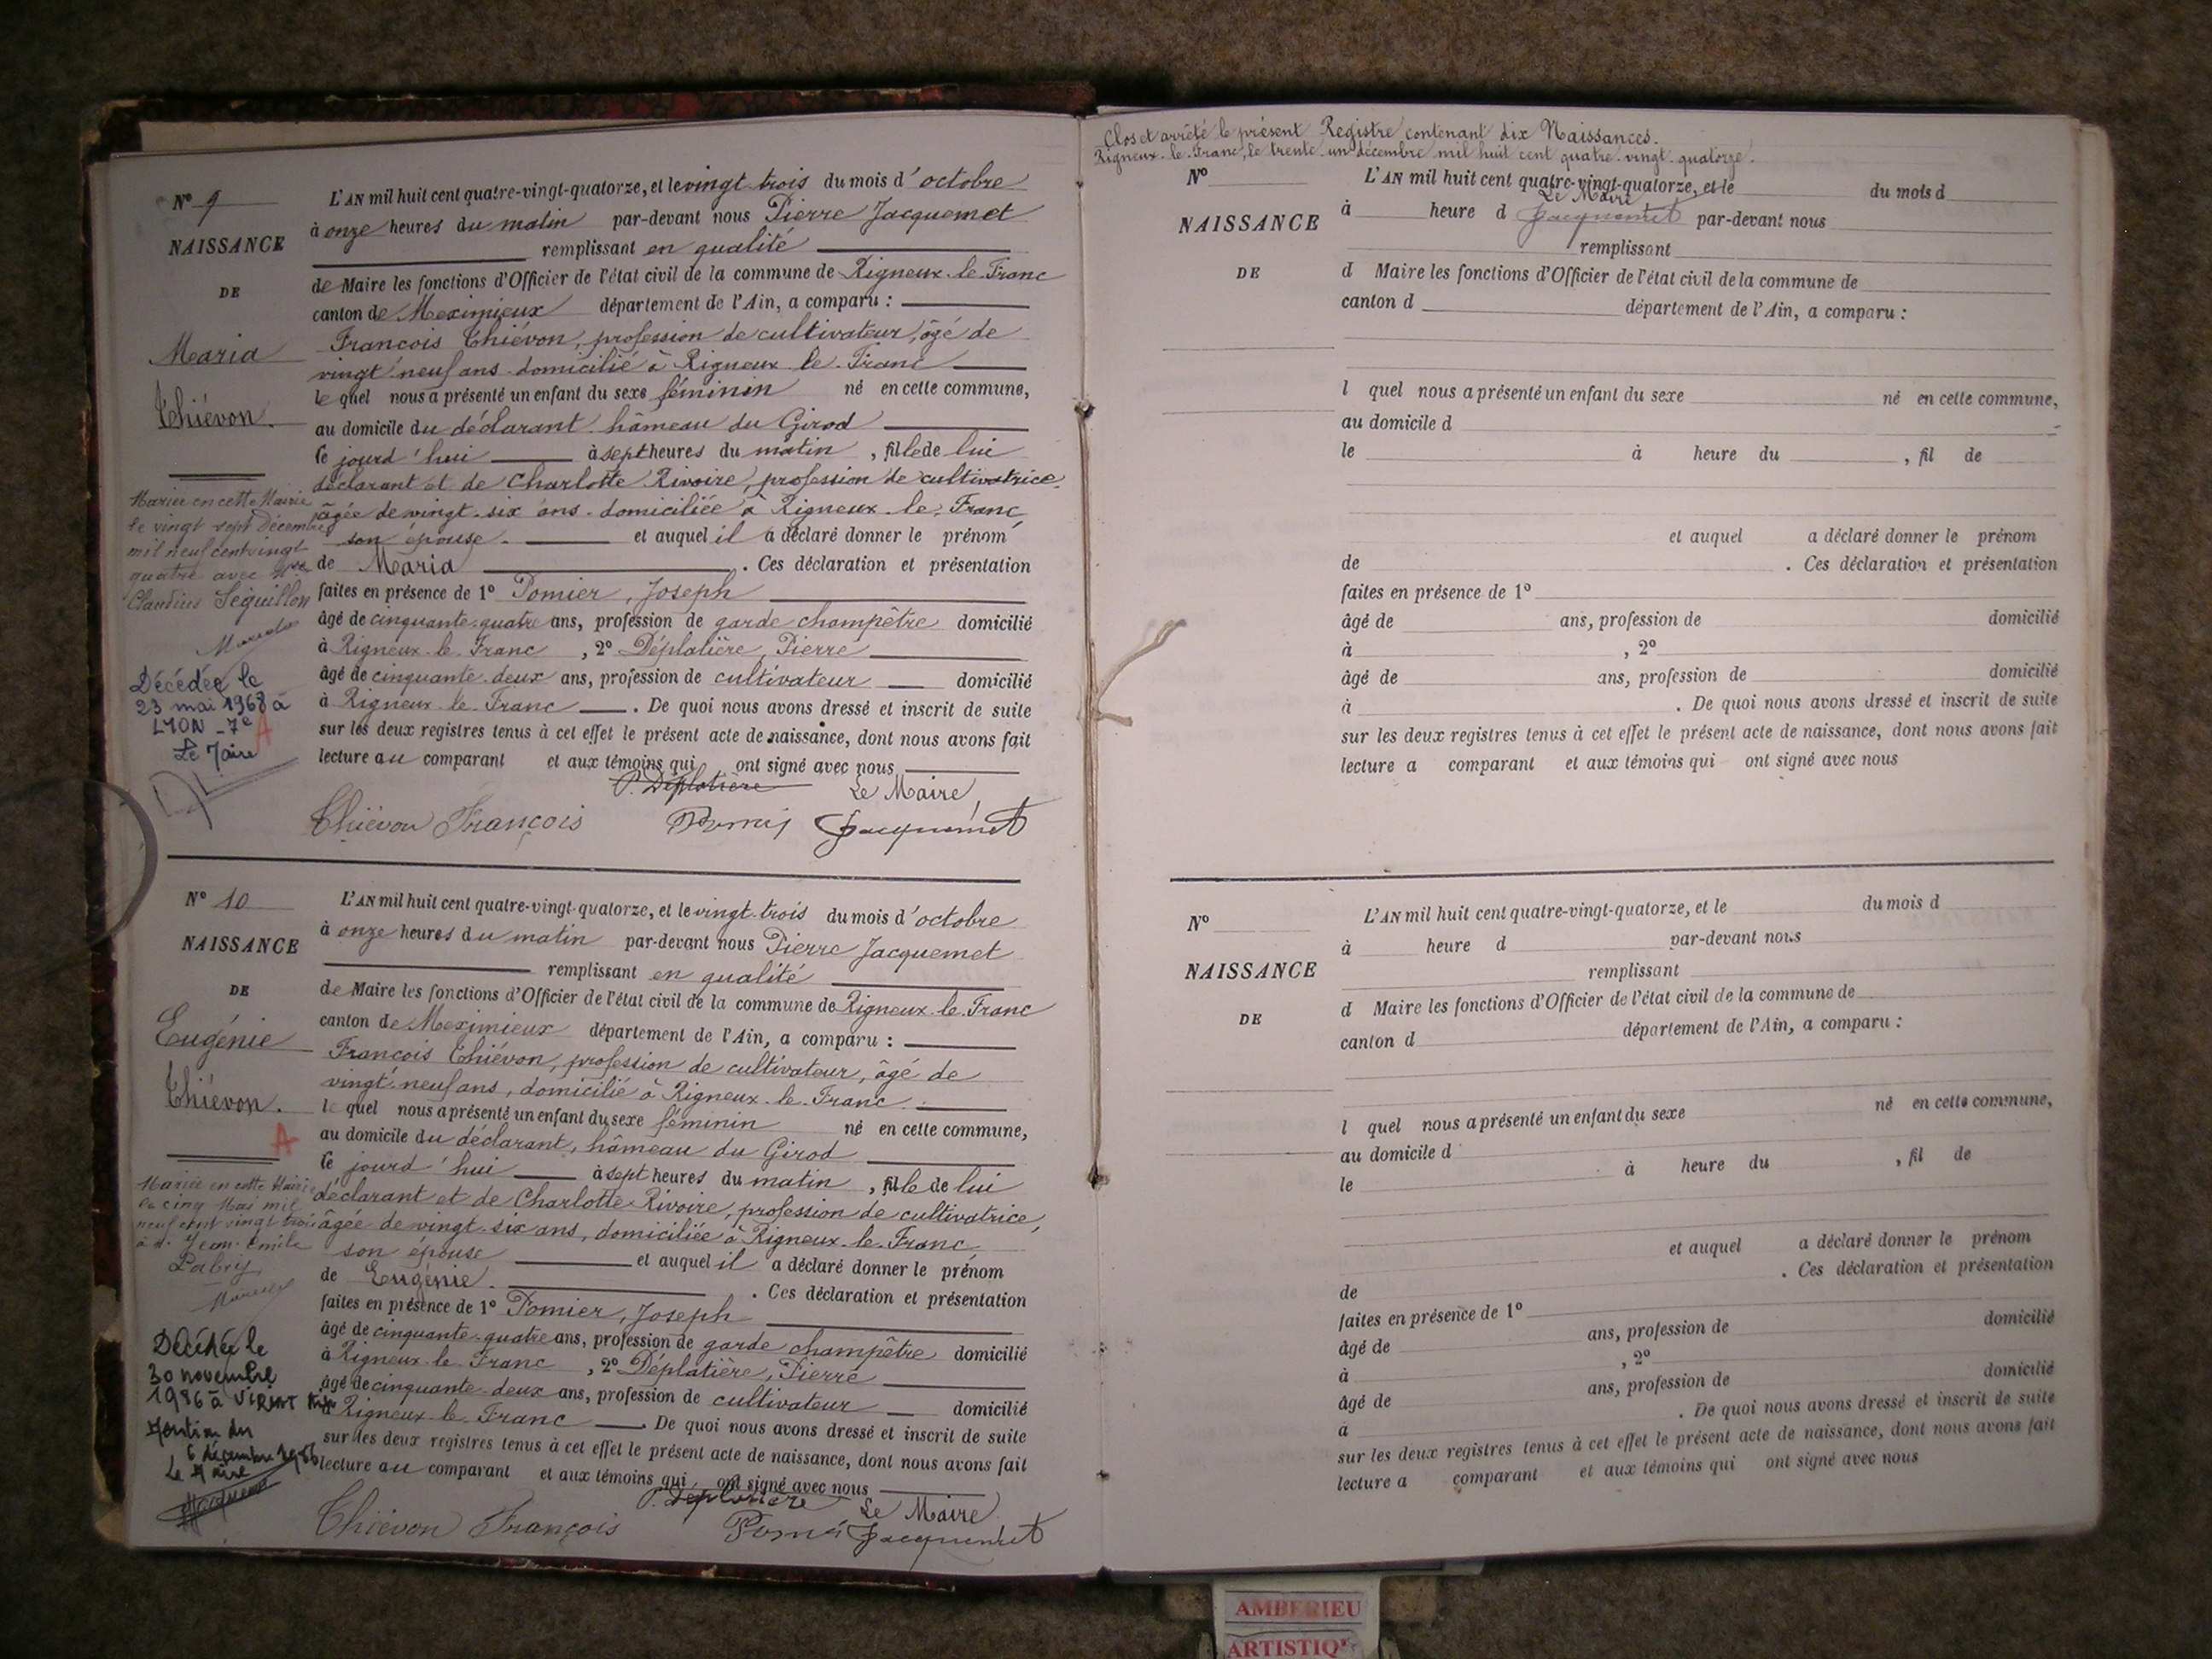 N° 9
NAISSANCE
DE
Maria
Thiévon.
Mariée en cette Mairie
le vingt sept Décembre
mil neuf cent vingt
quatre avec
Claudius Seguillon
Décédée le
23 mai 1968 à
LYON - 7e A
Le Maire
L'AN mil huit cent quatre-vingt-quatorze, et le vingt-trois du mois d'octobre
à onze heures du matin par-devant nous Pierre Jacquemet
remplissant en qualité
de Maire les fonctions d'Officier de l'état civil de la commune de Rigneux-le-Franc
canton de Meximieux département de l'Ain, a comparu :
François Thiévon, profession de cultivateur, âgé de
vingt-neuf ans domicilié à Rigneux-le-Franc
le quel nous a présenté un enfant du sexe féminin né en cette commune,
au domicile du déclarant hâmeau du Girod
le jourd'hui à sept heures du matin, fille de lui
déclarant et de Charlotte Rivoire, profession de cultivatrice,
âgée de vingt-six ans domiciliée à Rigneux-le-Franc
son épouse. et auquel il a déclaré donner le prénom
de Maria . Ces déclaration et présentation
faites en présence de 1° Pomier, Joseph
âgé de cinquante-quatre ans, profession de garde champêtre domicilié
à Rigneux-le-Franc , 2° Déplatière, Pierre
âgé de cinquante-deux ans, profession de cultivateur domicilié
à Rigneux-le-Franc . De quoi nous avons dressé et inscrit de suite
sur les deux registres tenus à cet effet le présent acte de naissance, dont nous avons fait
lecture au comparant et aux témoins qui ont signé avec nous
P. Déplatière Le Maire,
Thiévon François Jacquemet
N° 10
NAISSANCE
DE
Eugénie
Thiévon.
A
Mariée en cette Mairie
le cinq Mai mil
neuf cent vingt trois
à Jean Emile
Décédée le
30 novembre
1986 à VIRIAT Ain
Mention du
6 décembre 1986
Le Maire
L'AN mil huit cent quatre-vingt-quatorze, et le vingt-trois du mois d'octobre
à onze heures du matin par-devant nous Pierre Jacquemet
remplissant en qualité
de Maire les fonctions d'Officier de l'état civil de la commune de Rigneux-le-Franc
canton de Meximieux département de l'Ain, a comparu :
François Thiévon, profession de cultivateur, âgé de
vingt-neuf ans, domicilié à Rigneux-le-Franc.
le quel nous a présenté un enfant du sexe féminin né en cette commune,
au domicile du déclarant, hâmeau du Girod
le jourd'hui à sept heures du matin, fille de lui
déclarant et de Charlotte Rivoire, profession de cultivatrice,
âgée de vingt-six ans, domiciliée à Rigneux-le-Franc,
son épouse et auquel il a déclaré donner le prénom
de Eugénie. . Ces déclaration et présentation
faites en présence de 1° Pomier, Joseph
âgé de cinquante-quatre ans, profession de garde champêtre domicilié
à Rigneux-le-Franc , 2° Déplatière, Pierre
âgé de cinquante-deux ans, profession de cultivateur domicilié
à Rigneux-le-Franc . De quoi nous avons dressé et inscrit de suite
sur les deux registres tenus à cet effet le présent acte de naissance, dont nous avons fait
lecture au comparant et aux témoins qui ont signé avec nous
P. Déplatière Le Maire
Thiévon François Jacquemet
Clos et arrêté le présent Registre contenant dix Naissances.
Rigneux-le-Franc, le trente-un décembre mil huit cent quatre-vingt-quatorze.
Le Maire
Jacquemet
N°
NAISSANCE
DE
L'AN mil huit cent quatre-vingt-quatorze, et le du mois d
à heure d par-devant nous
remplissant
d Maire les fonctions d'Officier de l'état civil de la commune de
canton d département de l'Ain, a comparu :
l quel nous a présenté un enfant du sexe né en cette commune,
au domicile d
le à heure du , fil de
et auquel a déclaré donner le prénom
de . Ces déclaration et présentation
faites en présence de 1°
âgé de ans, profession de domicilié
à , 2°
âgé de ans, profession de domicilié
à . De quoi nous avons dressé et inscrit de suite
sur les deux registres tenus à cet effet le présent acte de naissance, dont nous avons fait
lecture a comparant et aux témoins qui ont signé avec nous
N°
NAISSANCE
DE
L'AN mil huit cent quatre-vingt-quatorze, et le du mois d
à heure d par-devant nous
remplissant
d Maire les fonctions d'Officier de l'état civil de la commune de
canton d département de l'Ain, a comparu :
l quel nous a présenté un enfant du sexe né en cette commune,
au domicile d
le à heure du , fil de
et auquel a déclaré donner le prénom
de . Ces déclaration et présentation
faites en présence de 1°
âgé de ans, profession de domicilié
à , 2°
âgé de ans, profession de domicilié
à . De quoi nous avons dressé et inscrit de suite
sur les deux registres tenus à cet effet le présent acte de naissance, dont nous avons fait
lecture a comparant et aux témoins qui ont signé avec nous
AMBERIEU
ARTISTIQ